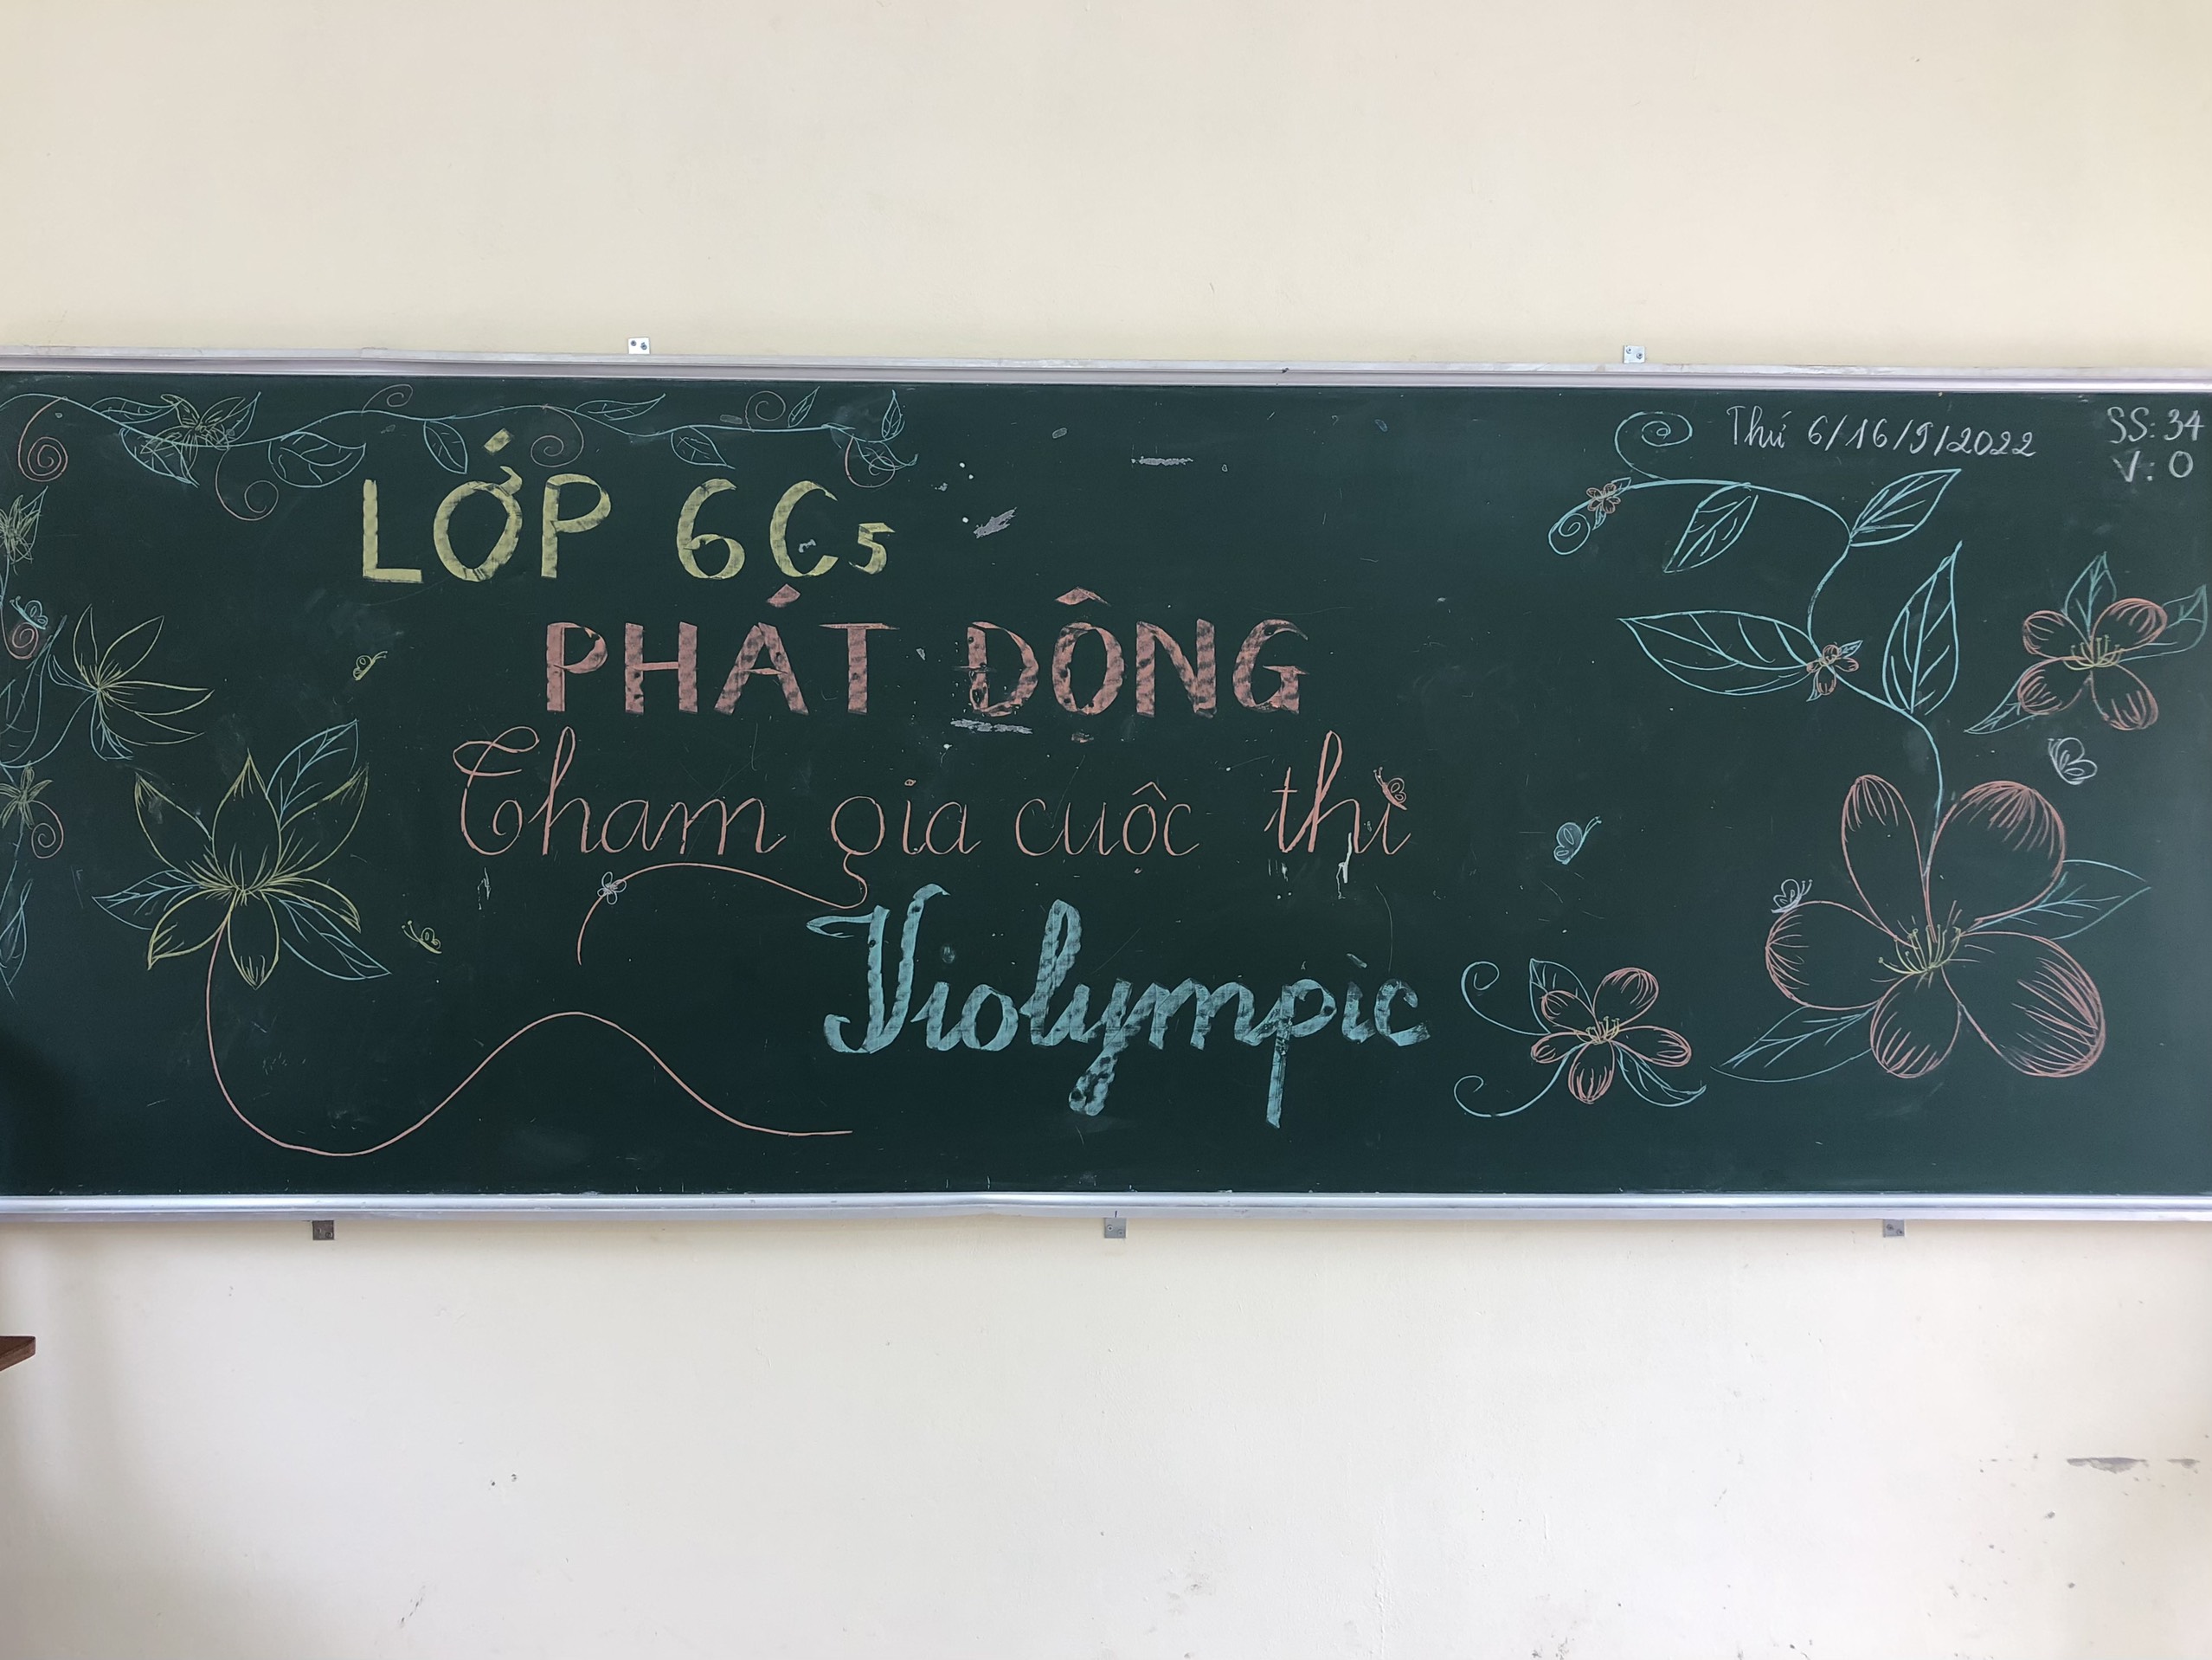 Thứ 6/16/9/2022
SS: 34
V: 0
LỚP 6C5
PHÁT ĐỘNG
Tham gia cuộc thi
Violympic